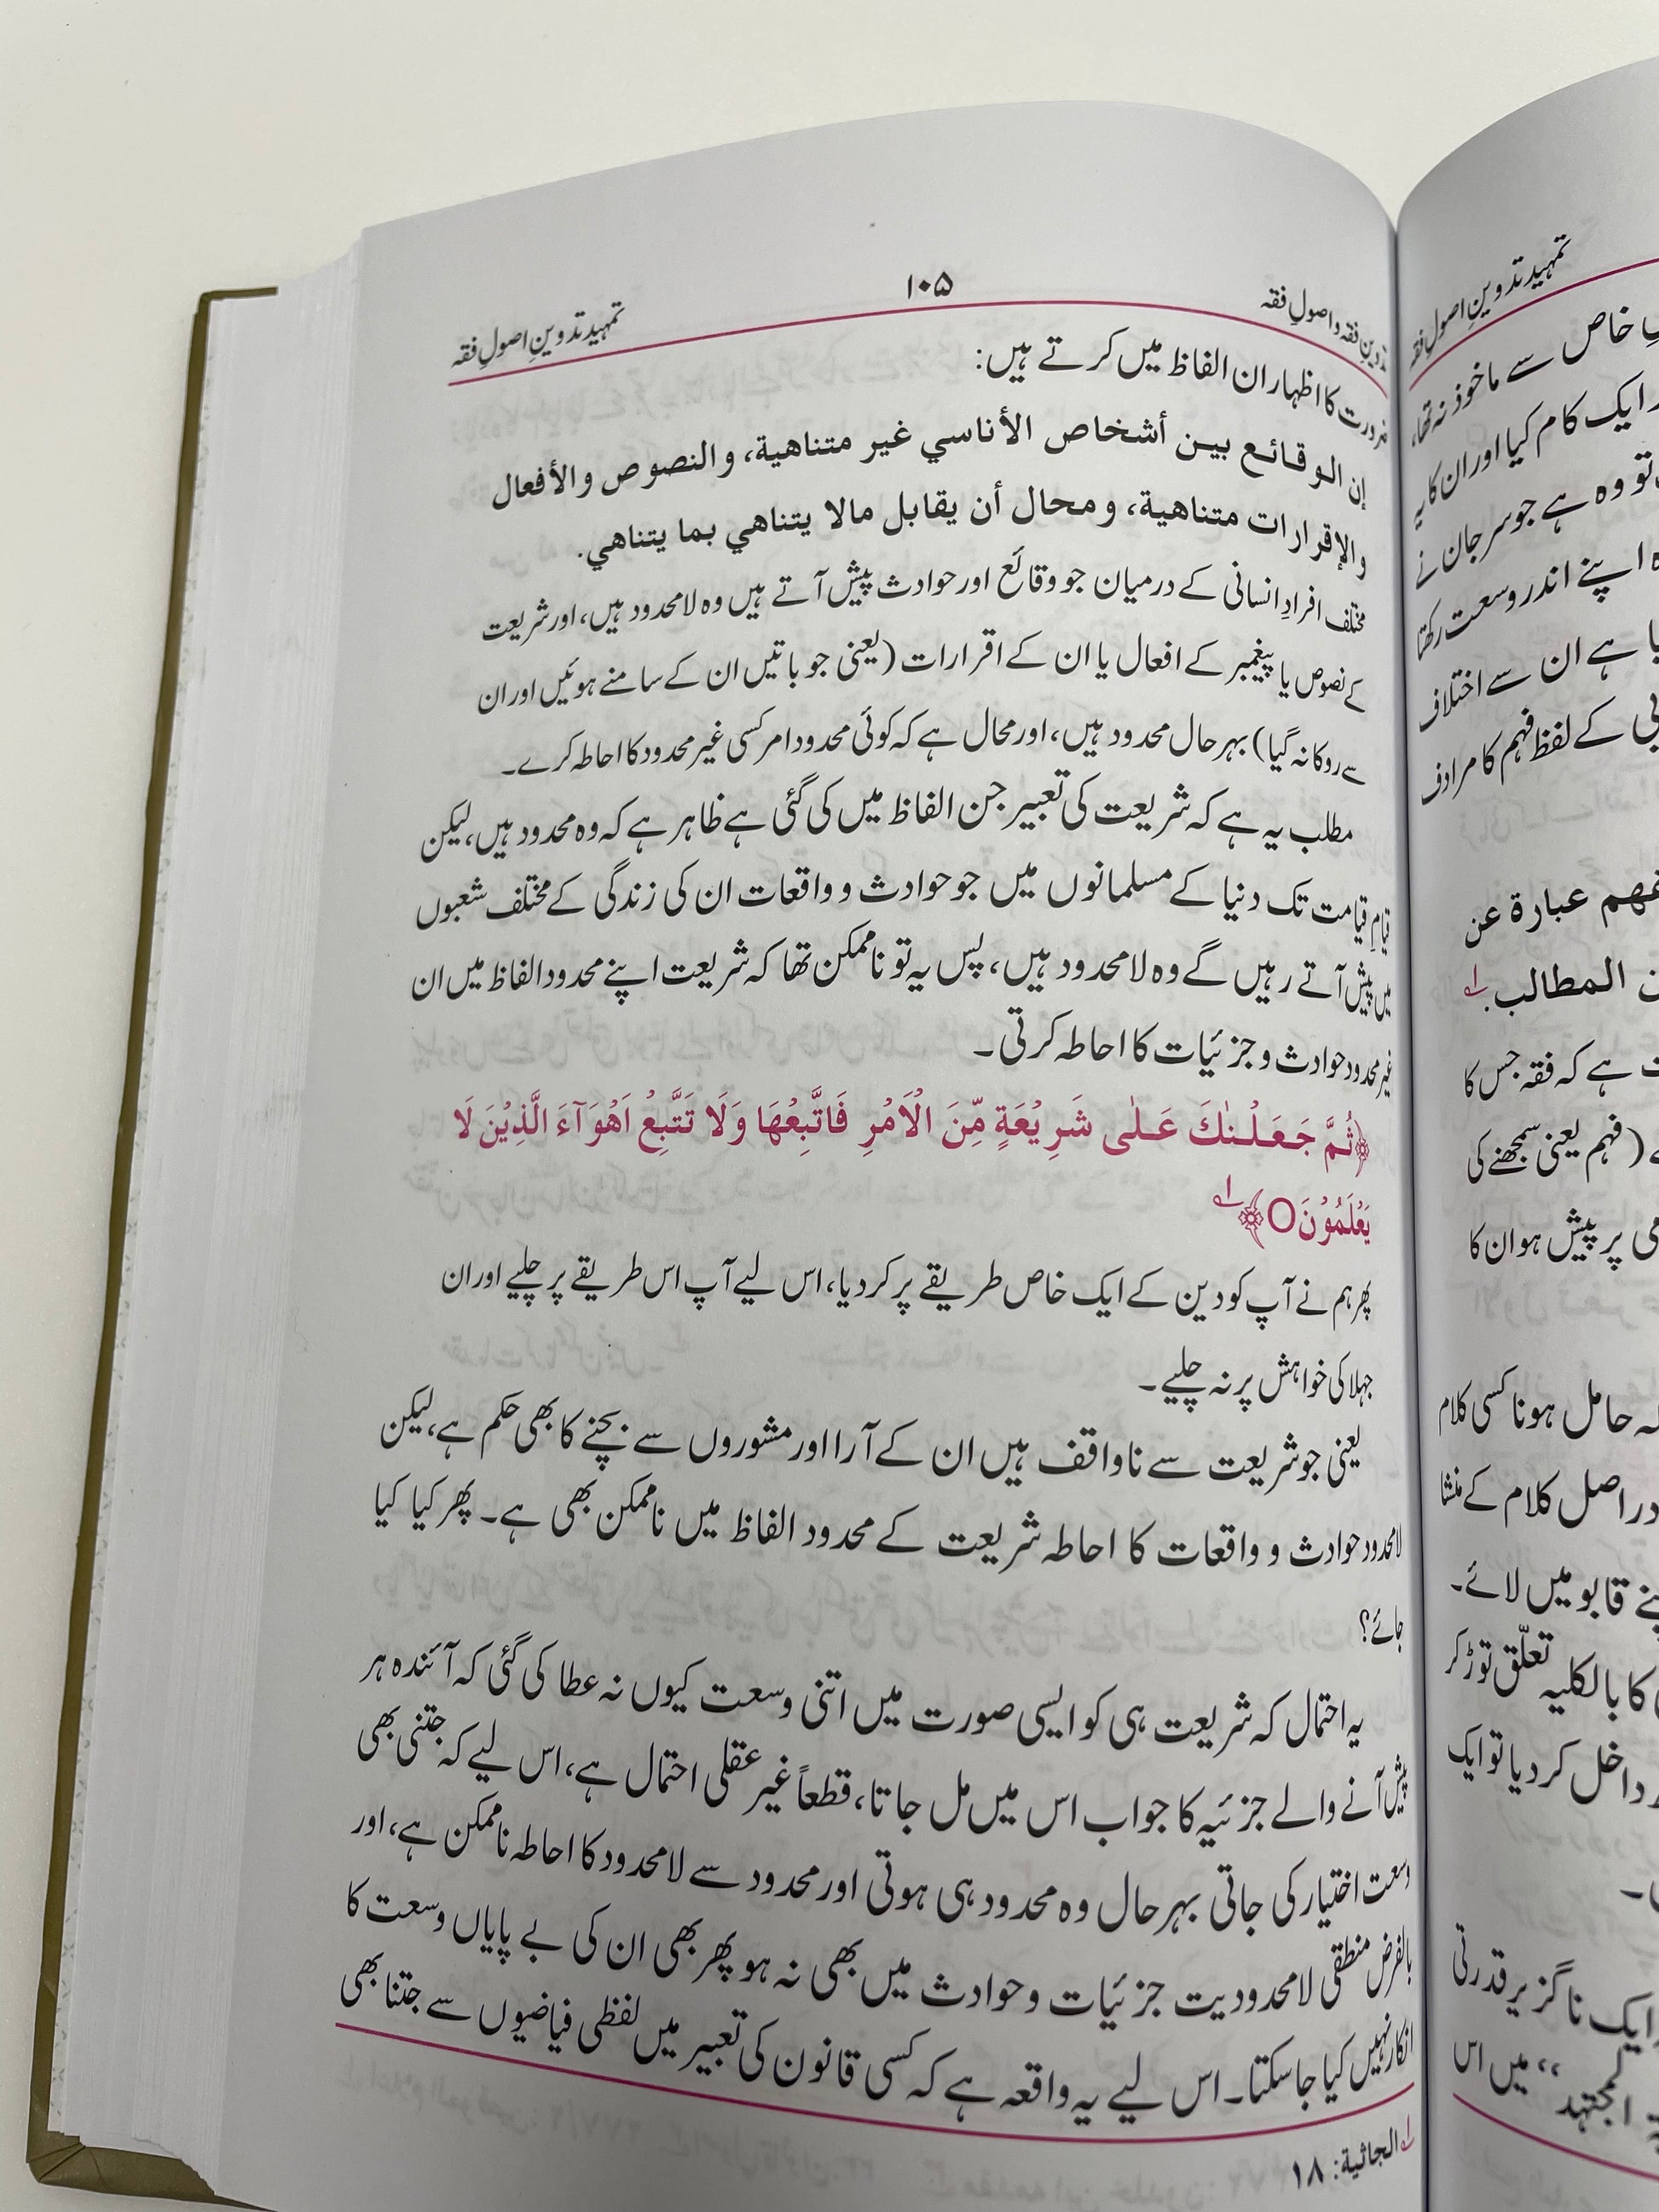 تدوینِ فقہ واصولِ فقہ
۱۰۵
تمہید تدوینِ اصولِ فقہ
ضرورت کا اظہار ان الفاظ میں کرتے ہیں:
إن الوقائع بین أشخاص الأناسي غیر متناهیة، والنصوص والأفعال
والإقرارات متناهیة، ومحال أن یقابل مالا یتناهي بما یتناهي.
مختلف افرادِ انسانی کے درمیان جو وقائع اور حوادث پیش آتے ہیں وہ لا محدود ہیں، اور شریعت
کے نصوص یا پیغمبر کے افعال یا ان کے اقرارات (یعنی جو باتیں ان کے سامنے ہوئیں اور ان
سے روکا نہ گیا) بہر حال محدود ہیں، اور محال ہے کہ کوئی محدود امر کسی غیر محدود کا احاطہ کرے۔
مطلب یہ ہے کہ شریعت کی تعبیر جن الفاظ میں کی گئی ہے ظاہر ہے کہ وہ محدود ہیں، لیکن
قیامِ قیامت تک دنیا کے مسلمانوں میں جو حوادث و واقعات ان کی زندگی کے مختلف شعبوں
میں پیش آتے رہیں گے وہ لا محدود ہیں، پس یہ تو ناممکن تھا کہ شریعت اپنے محدود الفاظ میں ان
غیر محدود حوادث و جزئیات کا احاطہ کرتی۔
﴿ثُمَّ جَعَلْنٰكَ عَلٰى شَرِيْعَةٍ مِّنَ الْاَمْرِ فَاتَّبِعْهَا وَلَا تَتَّبِعْ اَهْوَآءَ الَّذِيْنَ لَا
يَعْلَمُوْنَ○﴾ ؂۱
پھر ہم نے آپ کو دین کے ایک خاص طریقے پر کردیا، اس لیے آپ اس طریقے پر چلیے اور ان
جہلا کی خواہش پر نہ چلیے۔
یعنی جو شریعت سے ناواقف ہیں ان کے آرا اور مشوروں سے بچنے کا بھی حکم ہے، لیکن
لا محدود حوادث و واقعات کا احاطہ شریعت کے محدود الفاظ میں ناممکن بھی ہے۔ پھر کیا کیا
جائے؟
یہ احتمال کہ شریعت ہی کو ایسی صورت میں اتنی وسعت کیوں نہ عطا کی گئی کہ آئندہ ہر
پیش آنے والے جزئیہ کا جواب اس میں مل جاتا، قطعاً غیر عقلی احتمال ہے، اس لیے کہ جتنی بھی
وسعت اختیار کی جاتی بہر حال وہ محدود ہی ہوتی اور محدود سے لا محدود کا احاطہ ناممکن ہے، اور
بالفرض منطقی لا محدودیت جزئیات و حوادث میں بھی نہ ہو پھر بھی ان کی بے پایاں وسعت کا
انکار نہیں کیا جاسکتا۔ اس لیے یہ واقعہ ہے کہ کسی قانون کی تعبیر میں لفظی فیاضیوں سے جتنا بھی
؂۱ الجاثیة: ۱۸
تمہید تدوینِ اصولِ فقہ
خاص سے ماخوذ نہ تھا،
ایک کام کیا اور ان کا یہ
تو وہ ہے جو سرجان نے
اپنے اندر وسعت رکھتا
ہے ان سے اختلاف
کے لفظ فہم کا مرادف
عبارة عن
المطالب. ؂۱
ہے کہ فقہ جس کا
(فہم یعنی سمجھنے کی
پر پیش ہو ان کا
حامل ہونا کسی کلام
دراصل کلام کے منشا
قابو میں لائے۔
کا بالکلیہ تعلّق توڑ کر
داخل کردیا تو ایک
ایک ناگزیر قدرتی
المجتهد“ میں اس